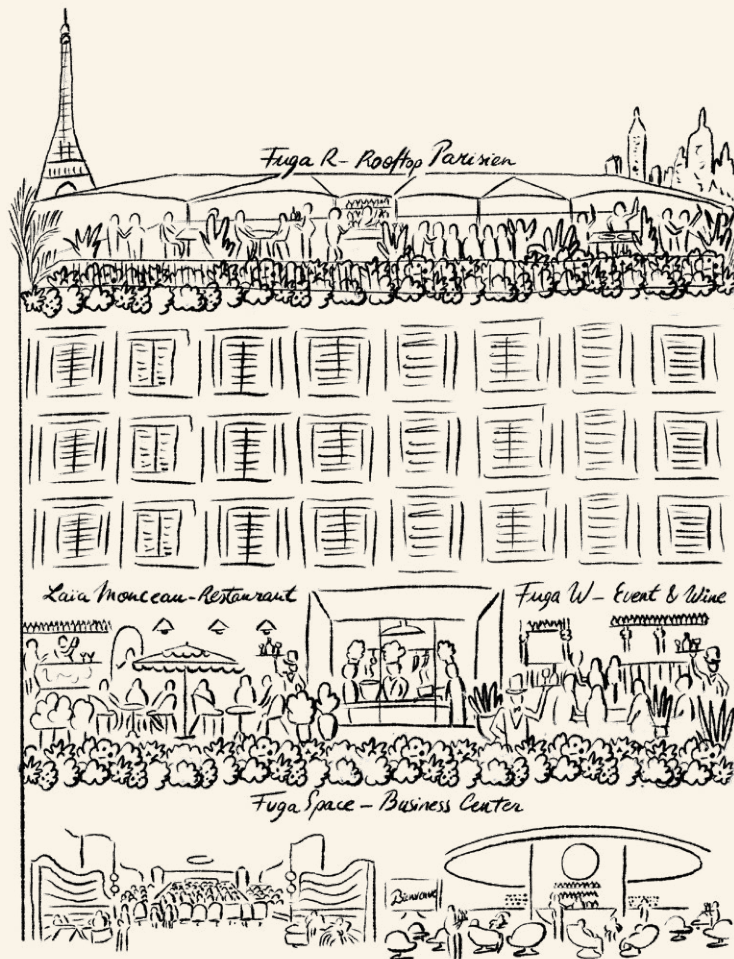 Fuga R - Rooftop Parisien
Laïa Monceau - Restaurant
Fuga W - Event & Wine
Fuga Space - Business Center
Bienvenue